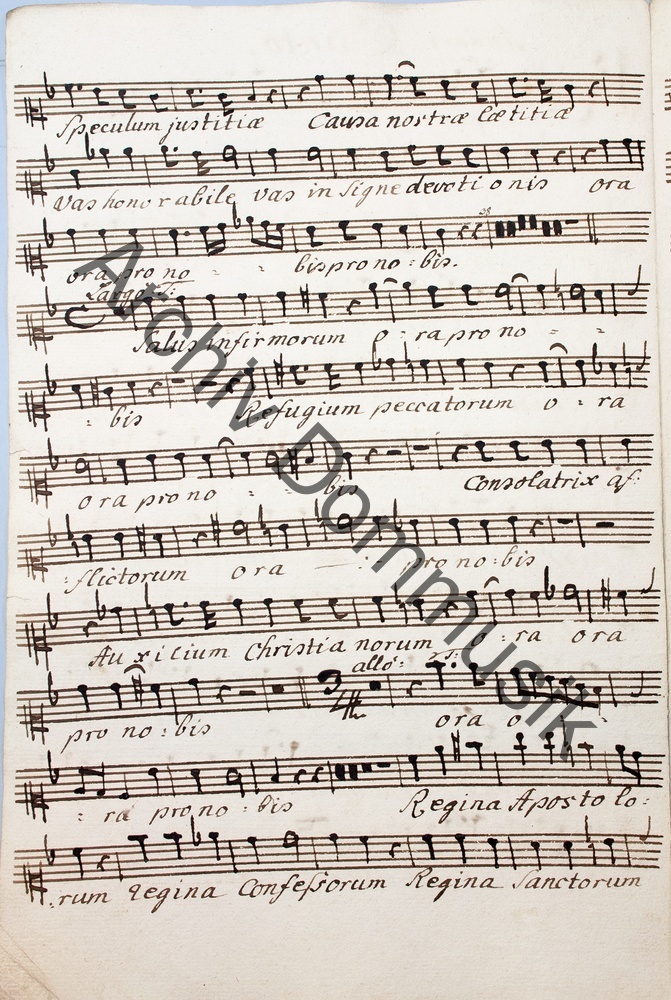 Speculum justitiæ Causa nostræ lætitiæ
Vas honorabile vas in signe devoti onis ora
ora pro no - - bis pro no : bis.
28
Largo
Salus infirmorum o : ra pro no - -
- bis Refugium peccatorum o : ra
ora pro no - - bis Consolatrix af:
:flictorum ora — : pro no:bis
Au xilium Christia norum o : ra ora
pro no : bis allo: 3/4 ora o
: ra pro no : bis Regina Aposto lo:
:rum regina Confeſsorum Regina Sanctorum
Archiv Dommusik